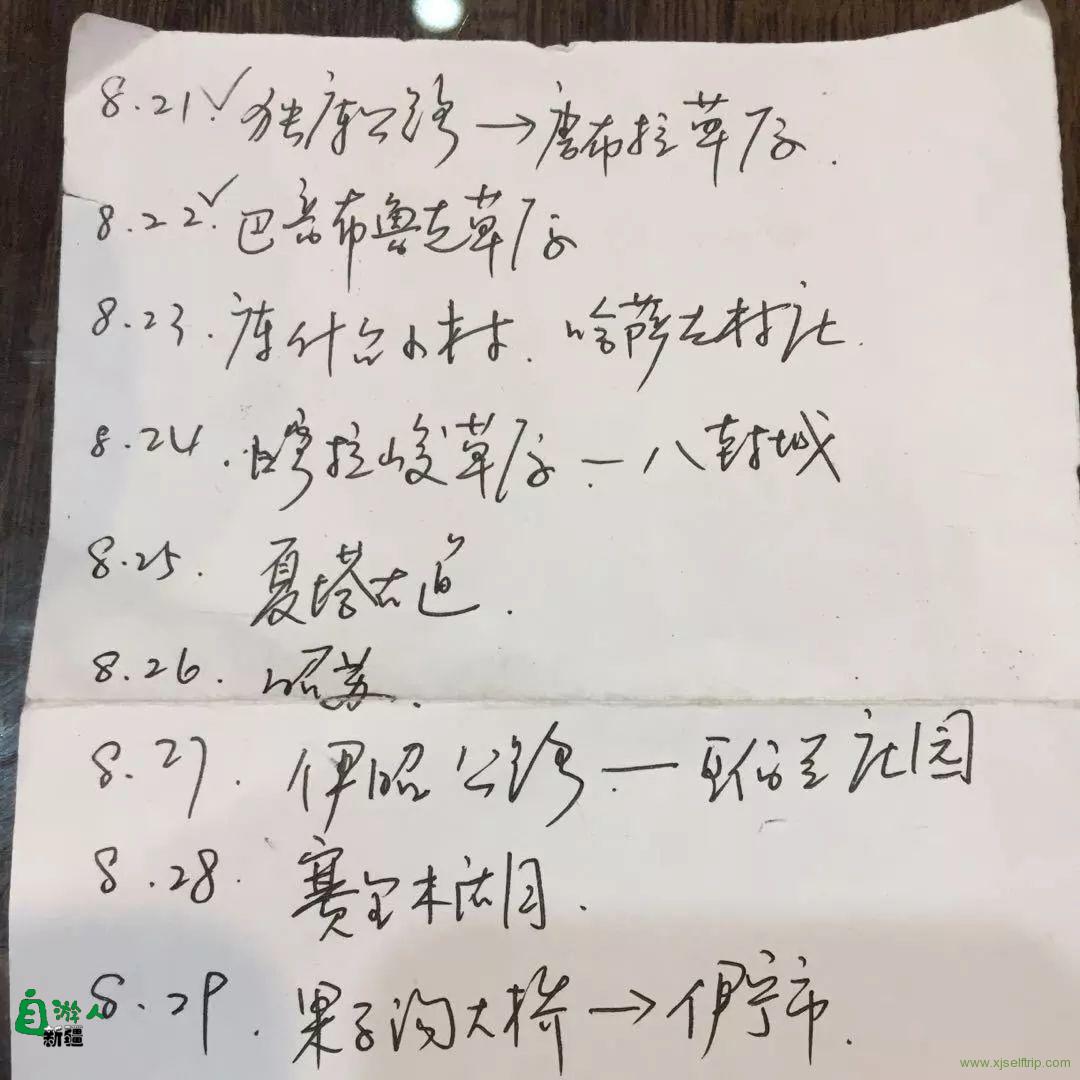 8.21.✓独库公路→唐布拉草原.
8.22.✓巴音布鲁克草原
8.23.库什台小村.哈萨克村庄.
8.24.喀拉峻草原—八卦城
8.25.夏塔古道.
8.26.昭苏.
8.27.伊昭公路.—庄园
8.28.赛里木湖.
8.29.果子沟大桥→伊宁市.
自游人
新疆
www.xjselftrip.com